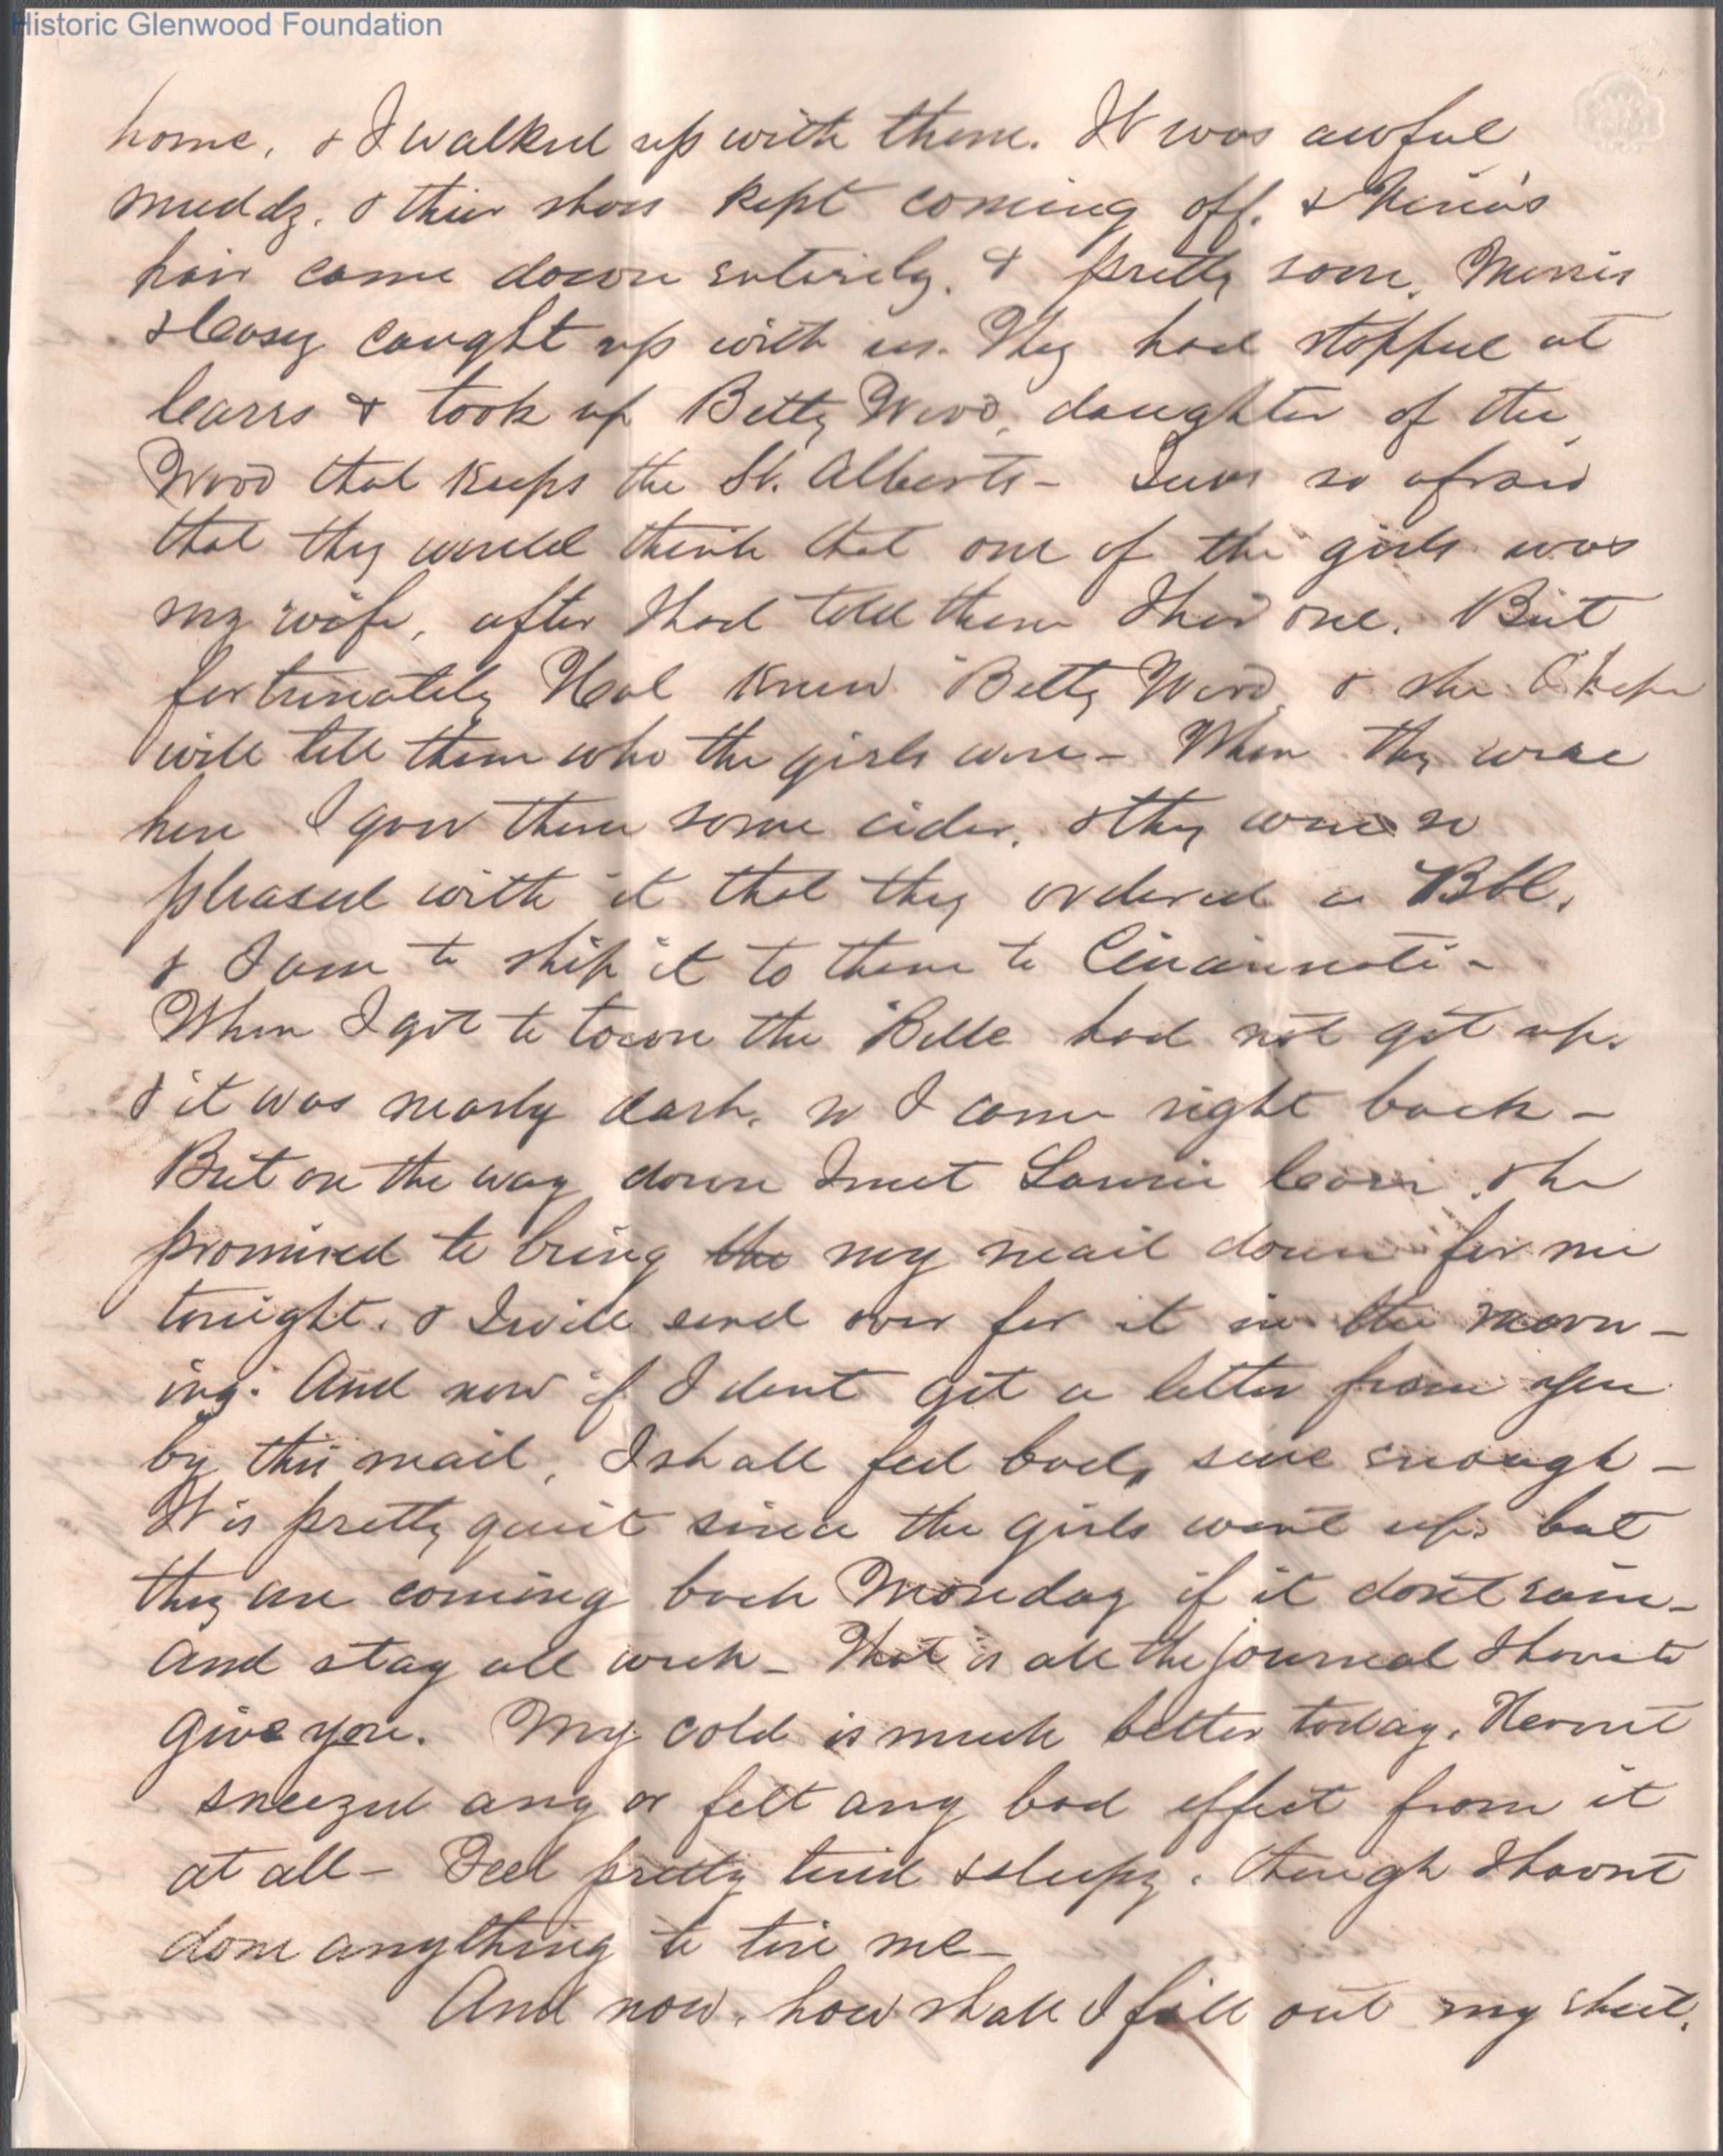 Historic Glenwood Foundation
home, & I walked up with them. It was awful
muddy, & thier shoes kept coming off. &
hair came down entirely. & pretty soon,
caught up with us. They had stopped at
& took up Betty Wood, daughter of the
Wood that keeps the St. Alberts - I was so afraid
that they would think that one of the girls was
my wife, after I had told them I had one. But
fortunately Hal knew Betty Wood, & she I hope
will tell them who the girls were - When they were
here I gave them some cider, & they were so
pleased with it that they ordered a Bbl.
& I am to ship it to them to Cincinnati -
When I got to town the Belle had not got up.
& it was nearly dark, so I came right back -
But on the way down I met & he
promised to bring the my mail down for me
tonight. & I will send over for it in the morn-
ing. And now if I dont get a letter from you
by this mail, I shall feel bad, sure enough -
It is pretty quiet since the girls went up. but
they are coming back Monday if it dont rain -
And stay all week - That is all the journal I have to
give you. My cold is much better today. Havnt
sneezed any or felt any bad effect from it
at all - Feel pretty tired & sleepy. though I havnt
done anything to tire me -
And now, how shall I fill out my sheet.